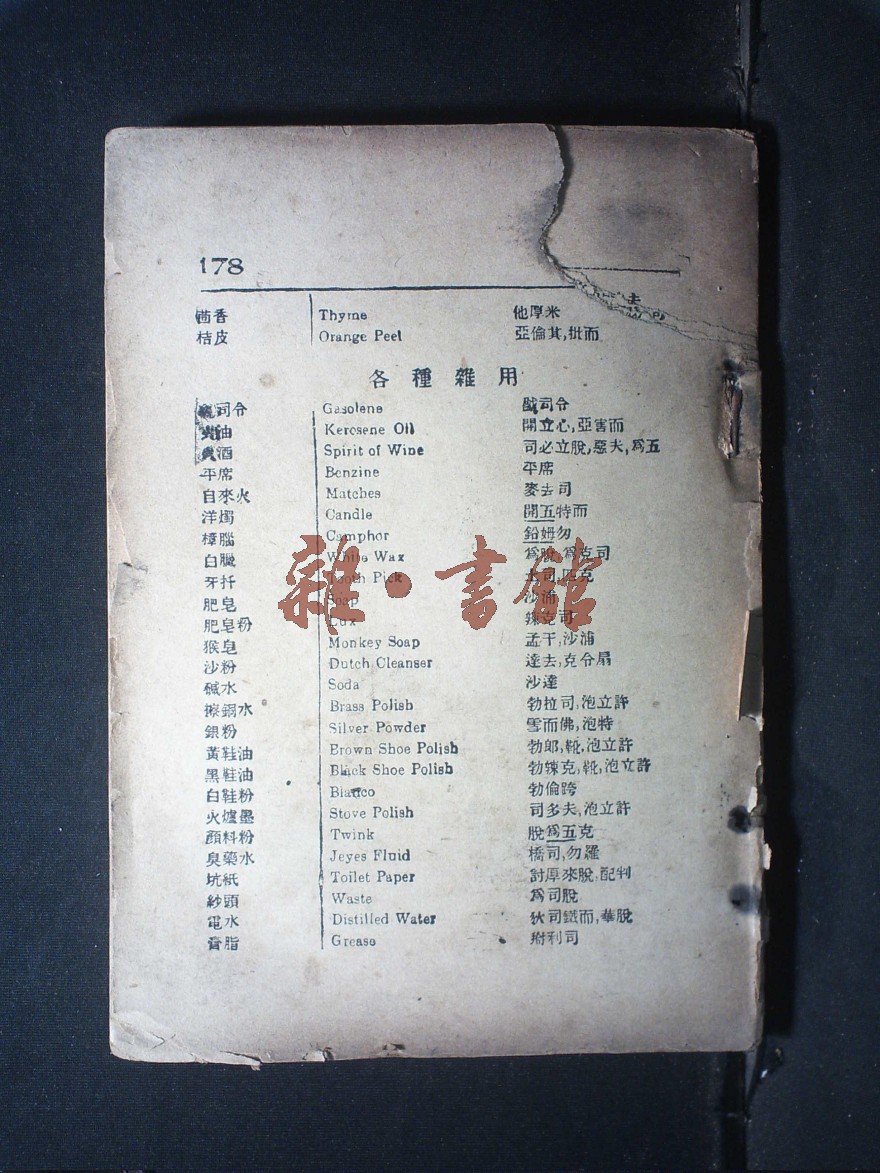 178
茴香 Thyme 他厚米
桔皮 Orange Peel 亞倫其,批而
各種雜用
司令 Gasolene 司令
油 Kerosene Oil 開立心,亞害而
酒 Spirit of Wine 司必立脫,惡夫,爲五
平席 Benzine 平席
自來火 Matches 麥去司
洋燭 Candle 開五特而
樟腦 Camphor 鉛妞勿
白臘 White Wax 爲脫,爲克司
牙扦 Tooth Pick 克
肥皂 Soap 沙浦
肥皂粉 Lux 辣克司
猴皂 Monkey Soap 孟干,沙浦
沙粉 Dutch Cleanser 達去,克令扇
碱水 Soda 沙達
擦銅水 Brass Polish 勃拉司,泡立許
銀粉 Silver Powder 雪而佛,泡特
黃鞋油 Brown Shoe Polish 勃郎,靴,泡立許
黑鞋油 Black Shoe Polish 勃辣克,靴,泡立許
白鞋粉 Blanco 勃倫跨
火爐墨 Stove Polish 司多夫,泡立許
顏料粉 Twink 脫爲五克
臭藥水 Jeyes Fluid 橋司,勿羅
坑紙 Toilet Paper 討厚來脫,配判
紗頭 Waste 爲司脫
電水 Distilled Water 狄司鐵而,華脫
膏脂 Grease 利司
雜·書館